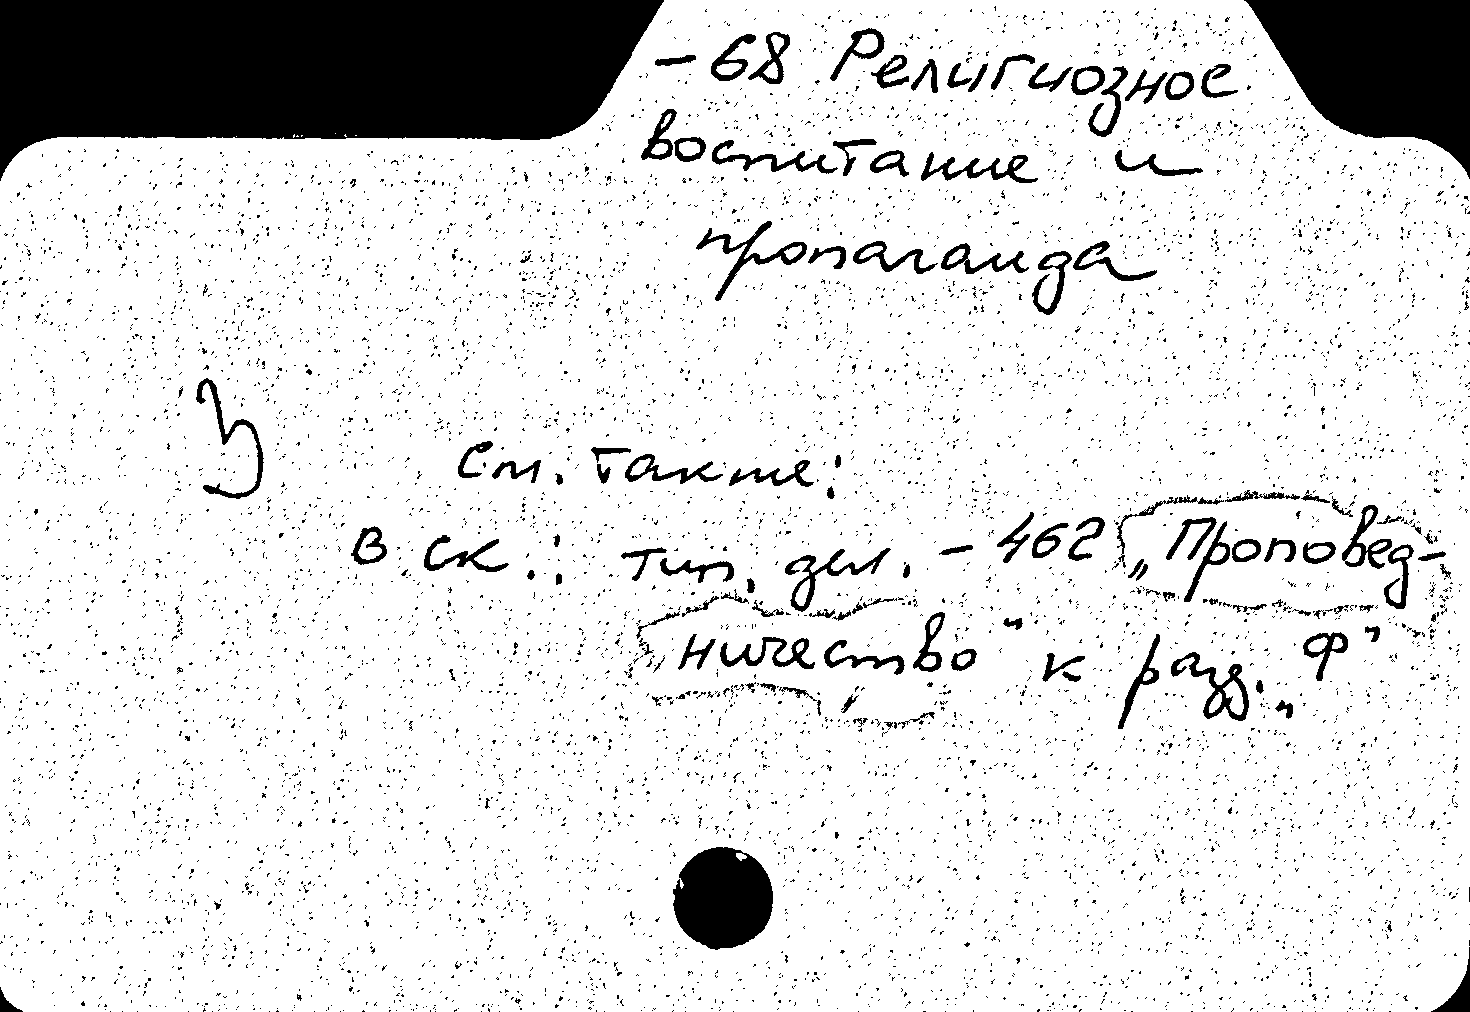 -68 Религиозное
воспитание и
пропаганда
См. также:
в СК.: тип. дел. -462 „Проповед-
ничество" к разд. „Ф"